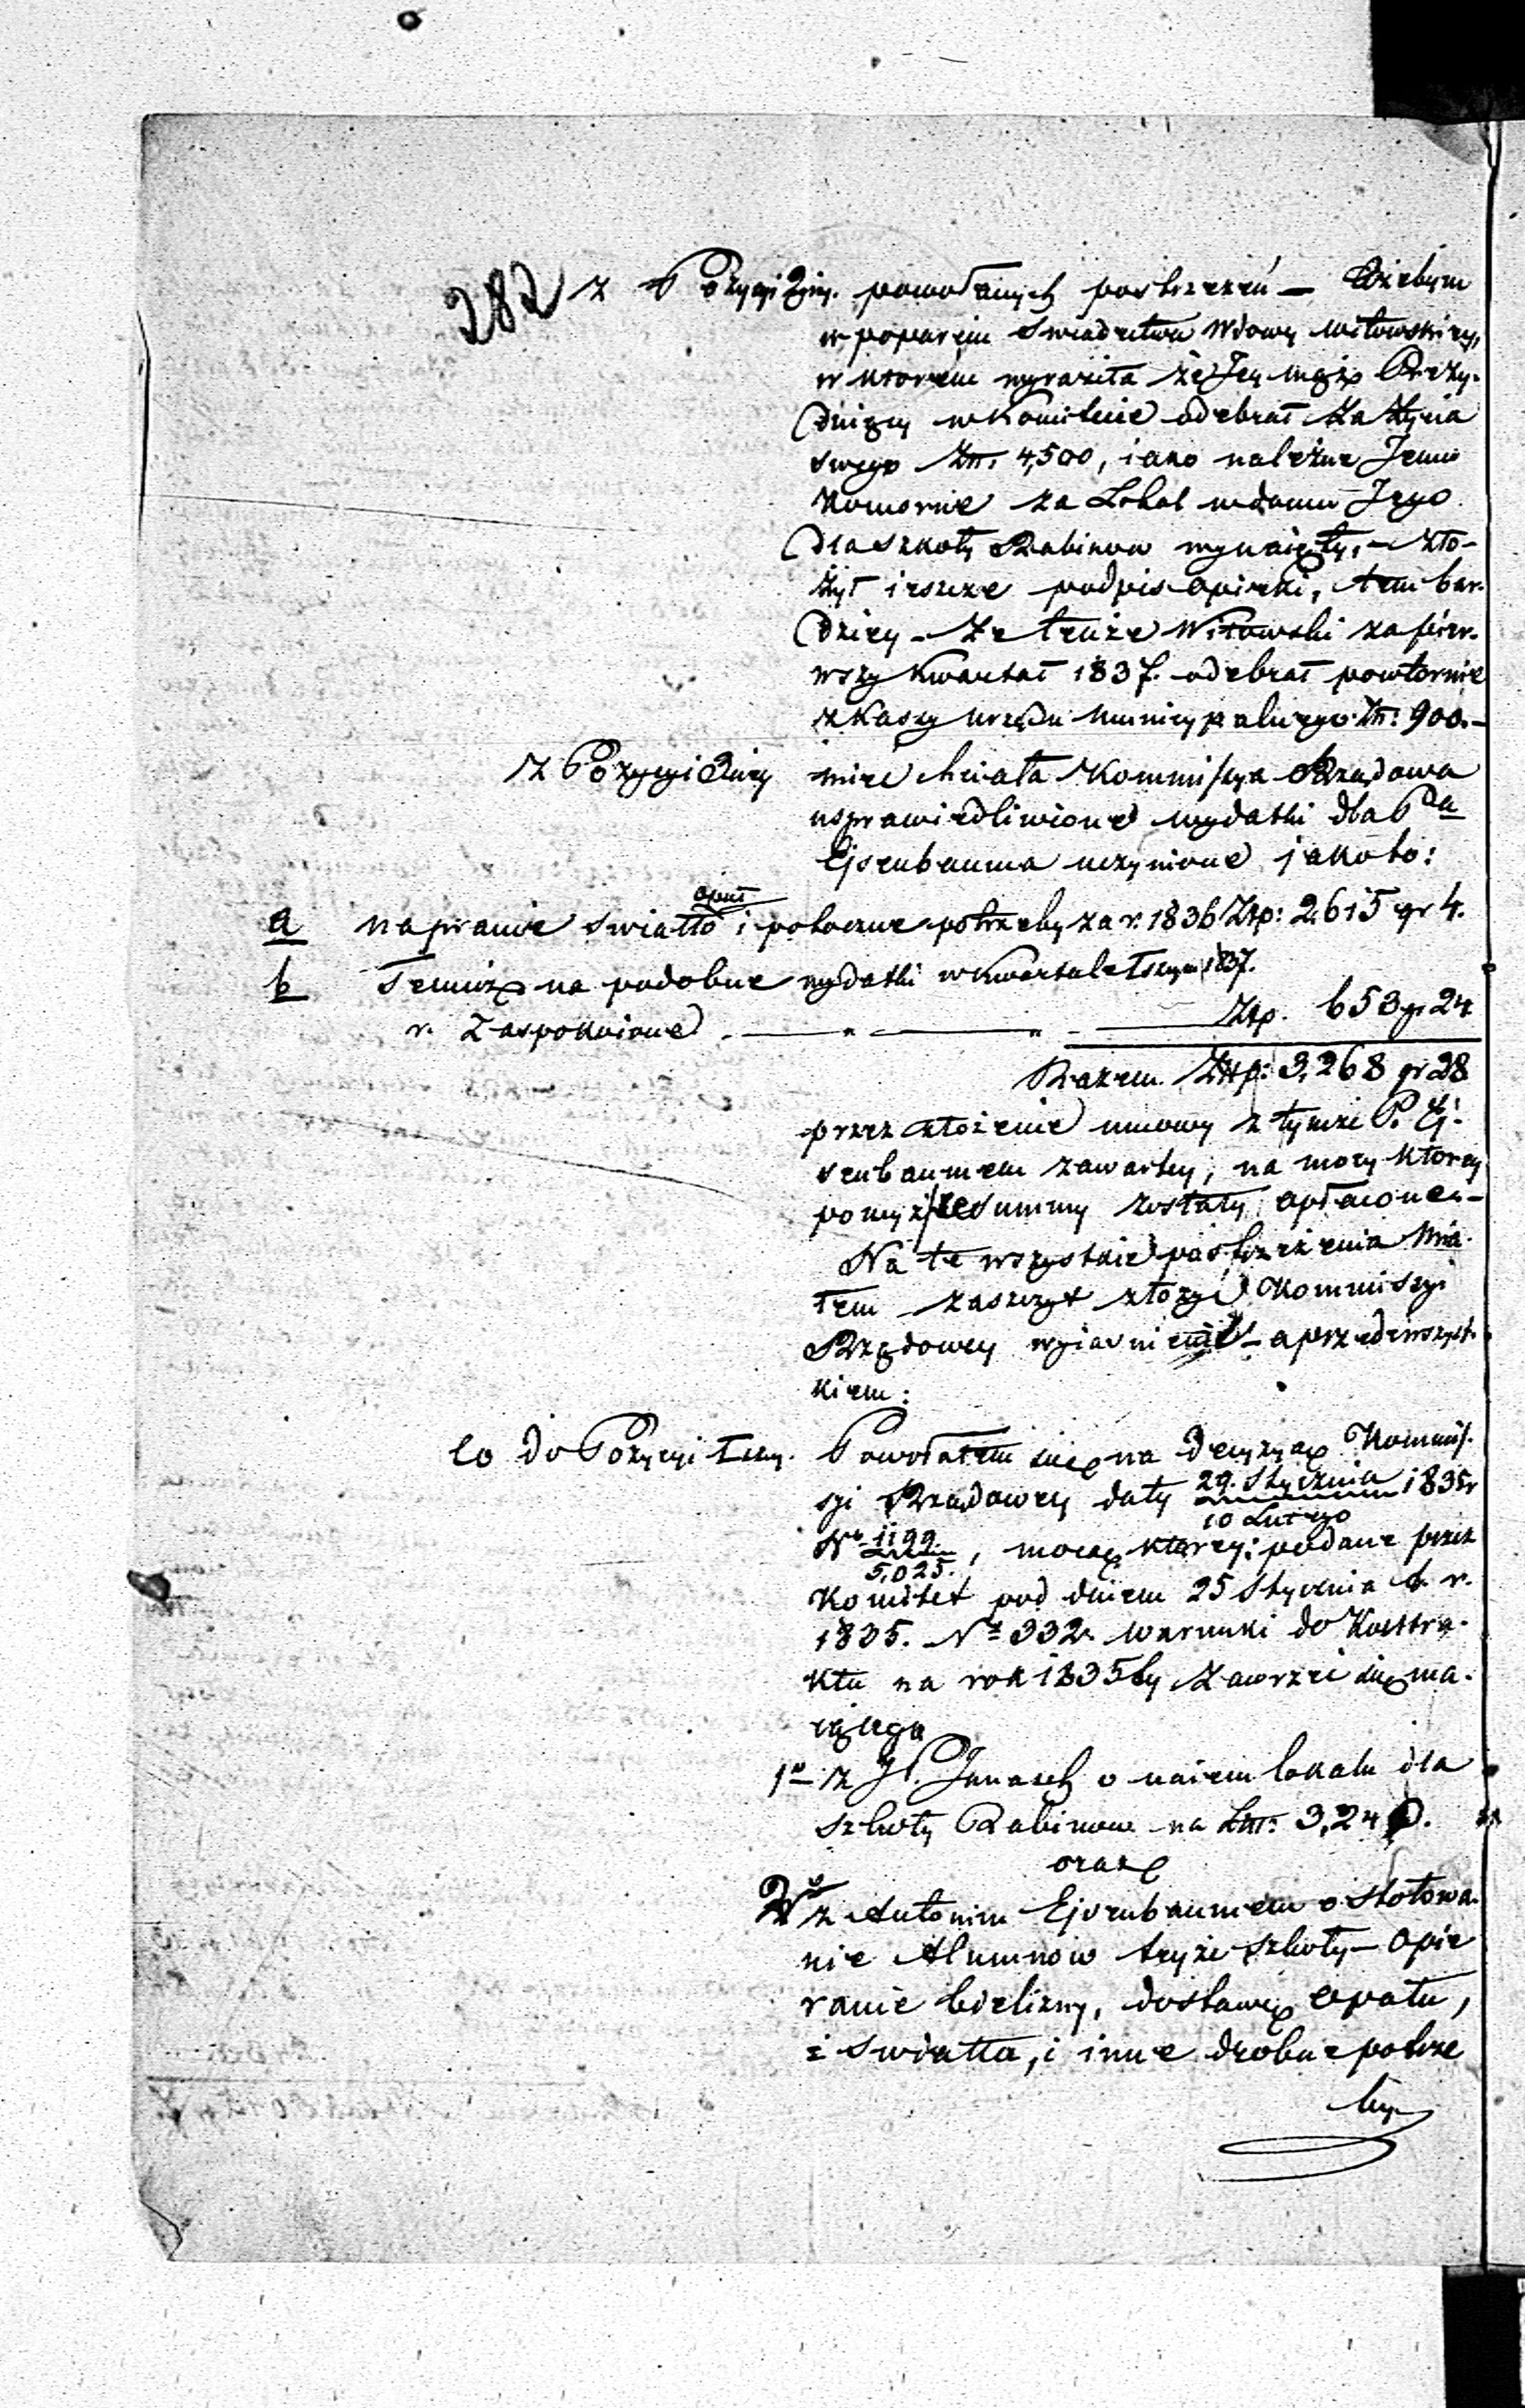 282
z Pozycyi 2giey. powołanych postrzeżeń — Ażebym
w poparciu Swiadectwa Wdowy Witowskiey,
w ktorém wyraziła że Jey mąż Prezy-
duiący w Komitecie odebrał za życia
swego Złł. 4,500, iako należne Jemu
Komorne za Lokal w domu Jego
dla Szkoły Rabinow wynaięty, — zło-
żył ieszcze podpis opieki, tem bar-
dziey — że tenże Witowski za pier-
wszy Kwartał 1837. odebrał powtornie
z Kassy Urzędu Municypalnego Złł: 900.—
z Pozycyi 3ciey mieć chciała Kommissya Rządowa
usprawiedliwione wydatki dla Pna
Ejsenbauma uczynione jakoto:
a na pranie swiatło opał i potoczne potrzeby za r. 1836 Złp: 2,615 gr 4.
b Temuż na podobne wydatki w Kwartale Iszym 1837.
r. Zaspokoione — „ — „ — Złp. 653 gr 24
Razem. Złłp: 3,268 gr 28
przez złożenie umowy z tymże P. Ej-
senbaumem zawartey, na mocy ktorey
powyższe summy zostały opłacone. —
Na te wszystkie postrzeżenia mia-
łem zaszczyt złożyć Kommissyi
Rządowey wyiasnienie — a przedewszyst-
kiem:
Co do Pozycyi Iszey. Powołałem się na decyzyą Kommis-
syi Rządowey daty 29. Stycznia 1835 r
10 Lutego
No 1199.
5,025. , mocą ktorey: podane przez
Komitet pod dniem 25 Stycznia t. r.
1835. No 332. warunki do Kontra-
ktu na rok 1835ty zawrzeć się ma-
iącego
1o z JP. Janasch o naiem lokalu dla
szkoły Rabinow na Złł: 3,240.
oraz
2o z Antonim Ejsenbaumem o Stołowa-
nie Alumnow teyże szkoły — opie
ranie bielizny, dostawę opału,
i swiatła, i inne drobne potrze
by.